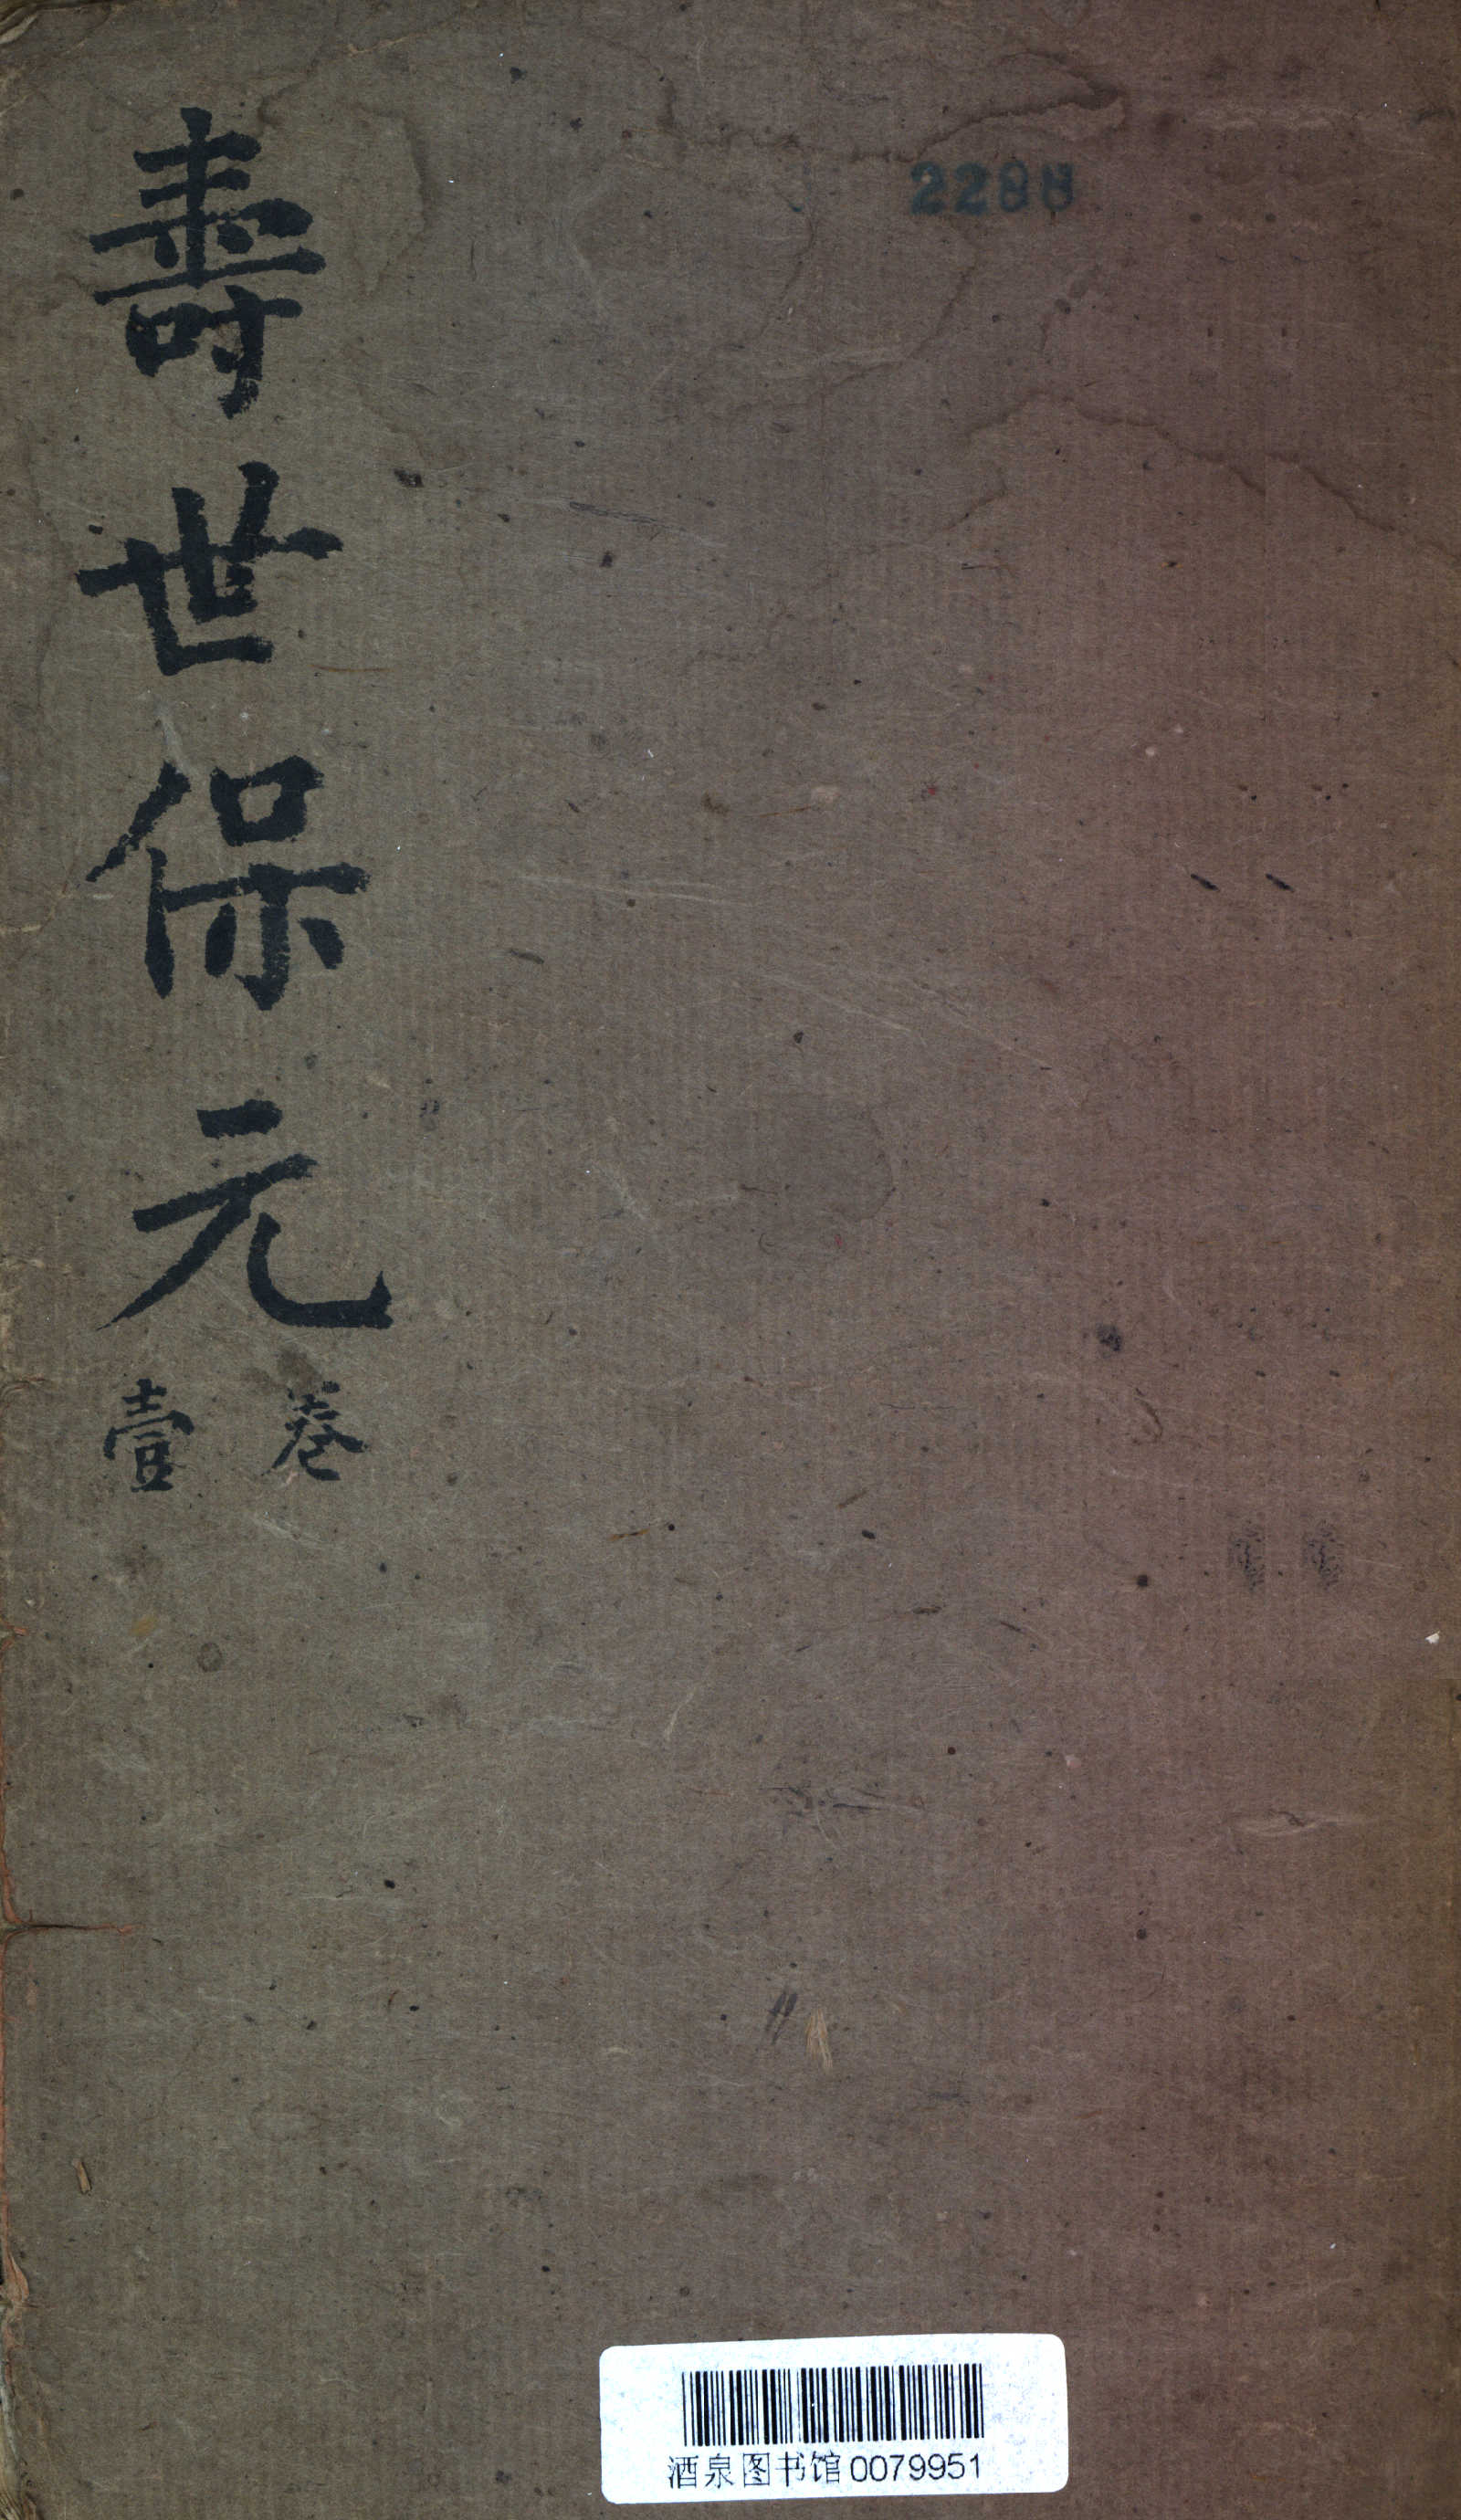 2288
壽世保元
卷
壹
酒泉图书馆0079951